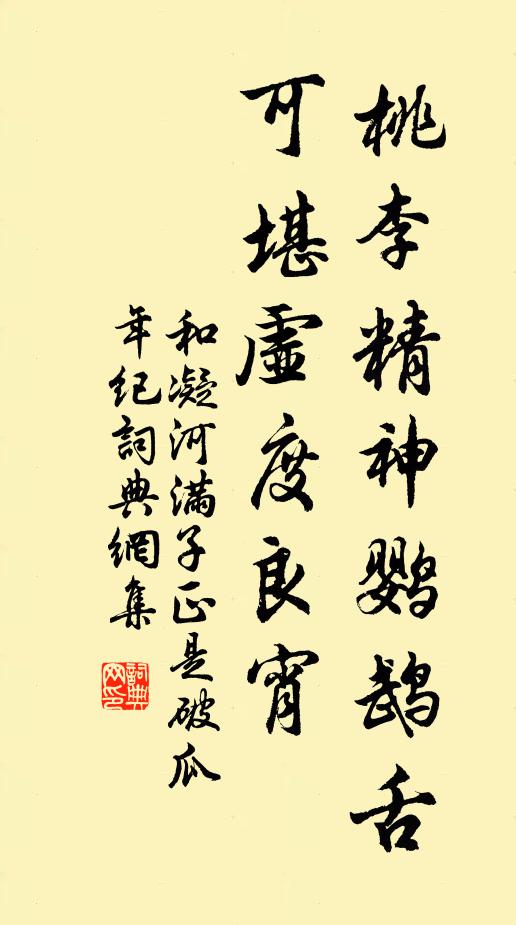 桃李精神鹦鹉舌
可堪虚度良宵
和凝河满子正是破瓜
年纪詞典網集
詞典
网印